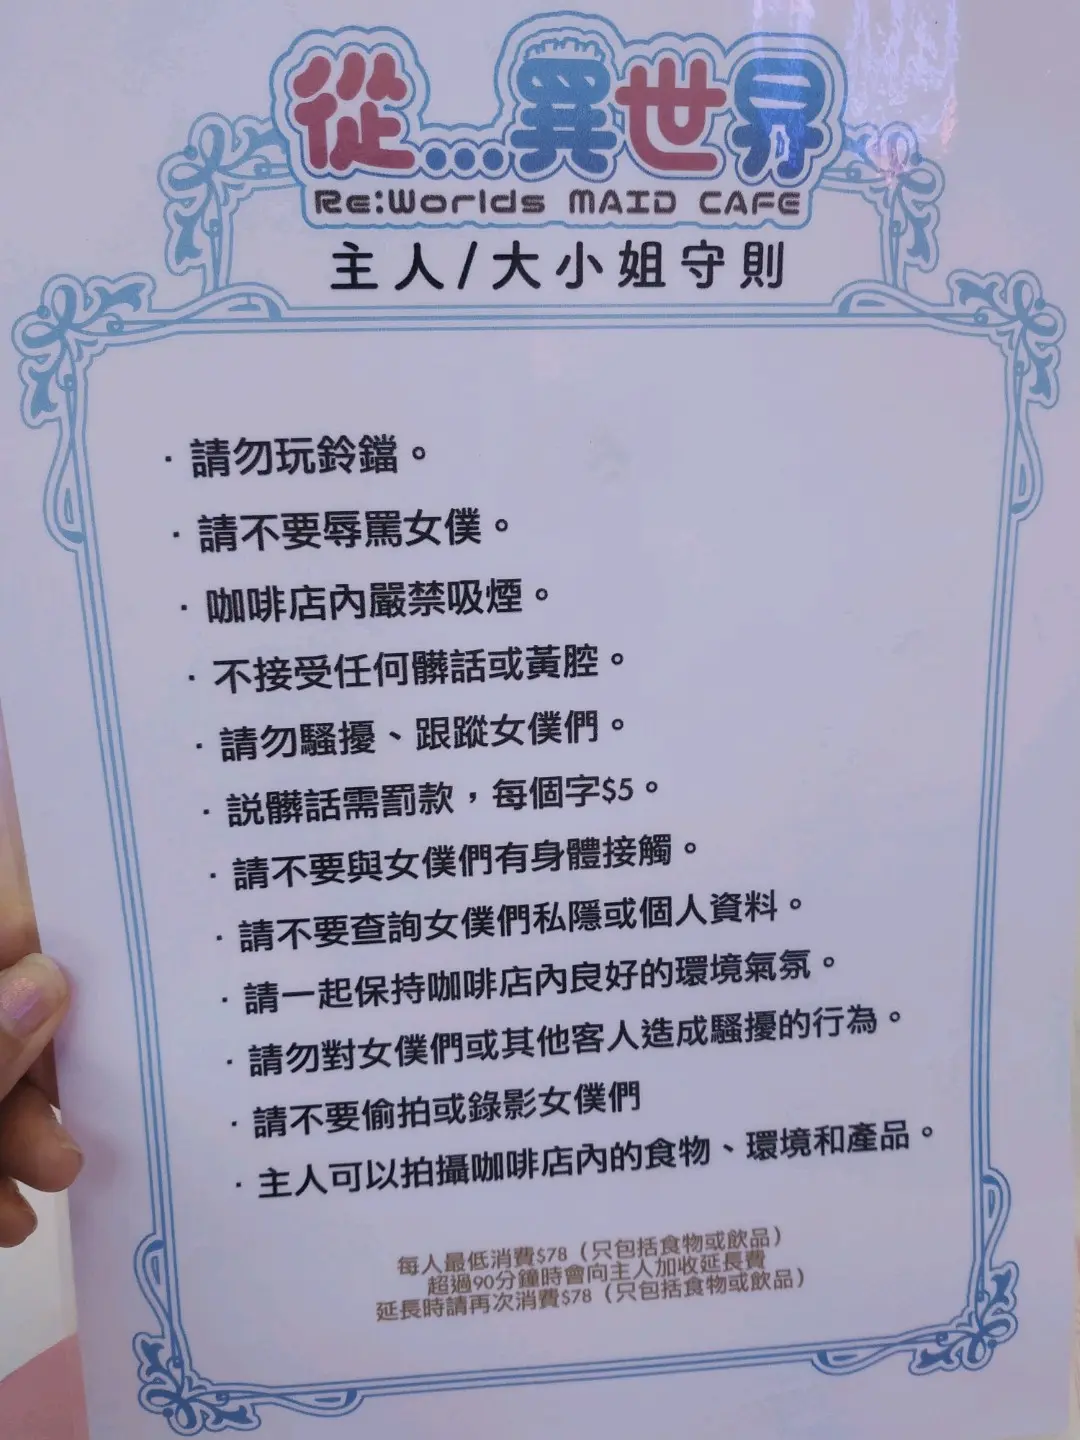 從...異世界
Re:Worlds MAID CAFE
主人/大小姐守則
· 請勿玩鈴鐺。
· 請不要辱罵女僕。
· 咖啡店內嚴禁吸煙。
· 不接受任何髒話或黃腔。
· 請勿騷擾、跟蹤女僕們。
· 説髒話需罰款，每個字$5。
· 請不要與女僕們有身體接觸。
· 請不要查詢女僕們私隱或個人資料。
· 請一起保持咖啡店內良好的環境氣氛。
· 請勿對女僕們或其他客人造成騷擾的行為。
· 請不要偷拍或錄影女僕們
· 主人可以拍攝咖啡店內的食物、環境和產品。
每人最低消費$78（只包括食物或飲品）
超過90分鐘時會向主人加收延長費
延長時請再次消費$78（只包括食物或飲品）